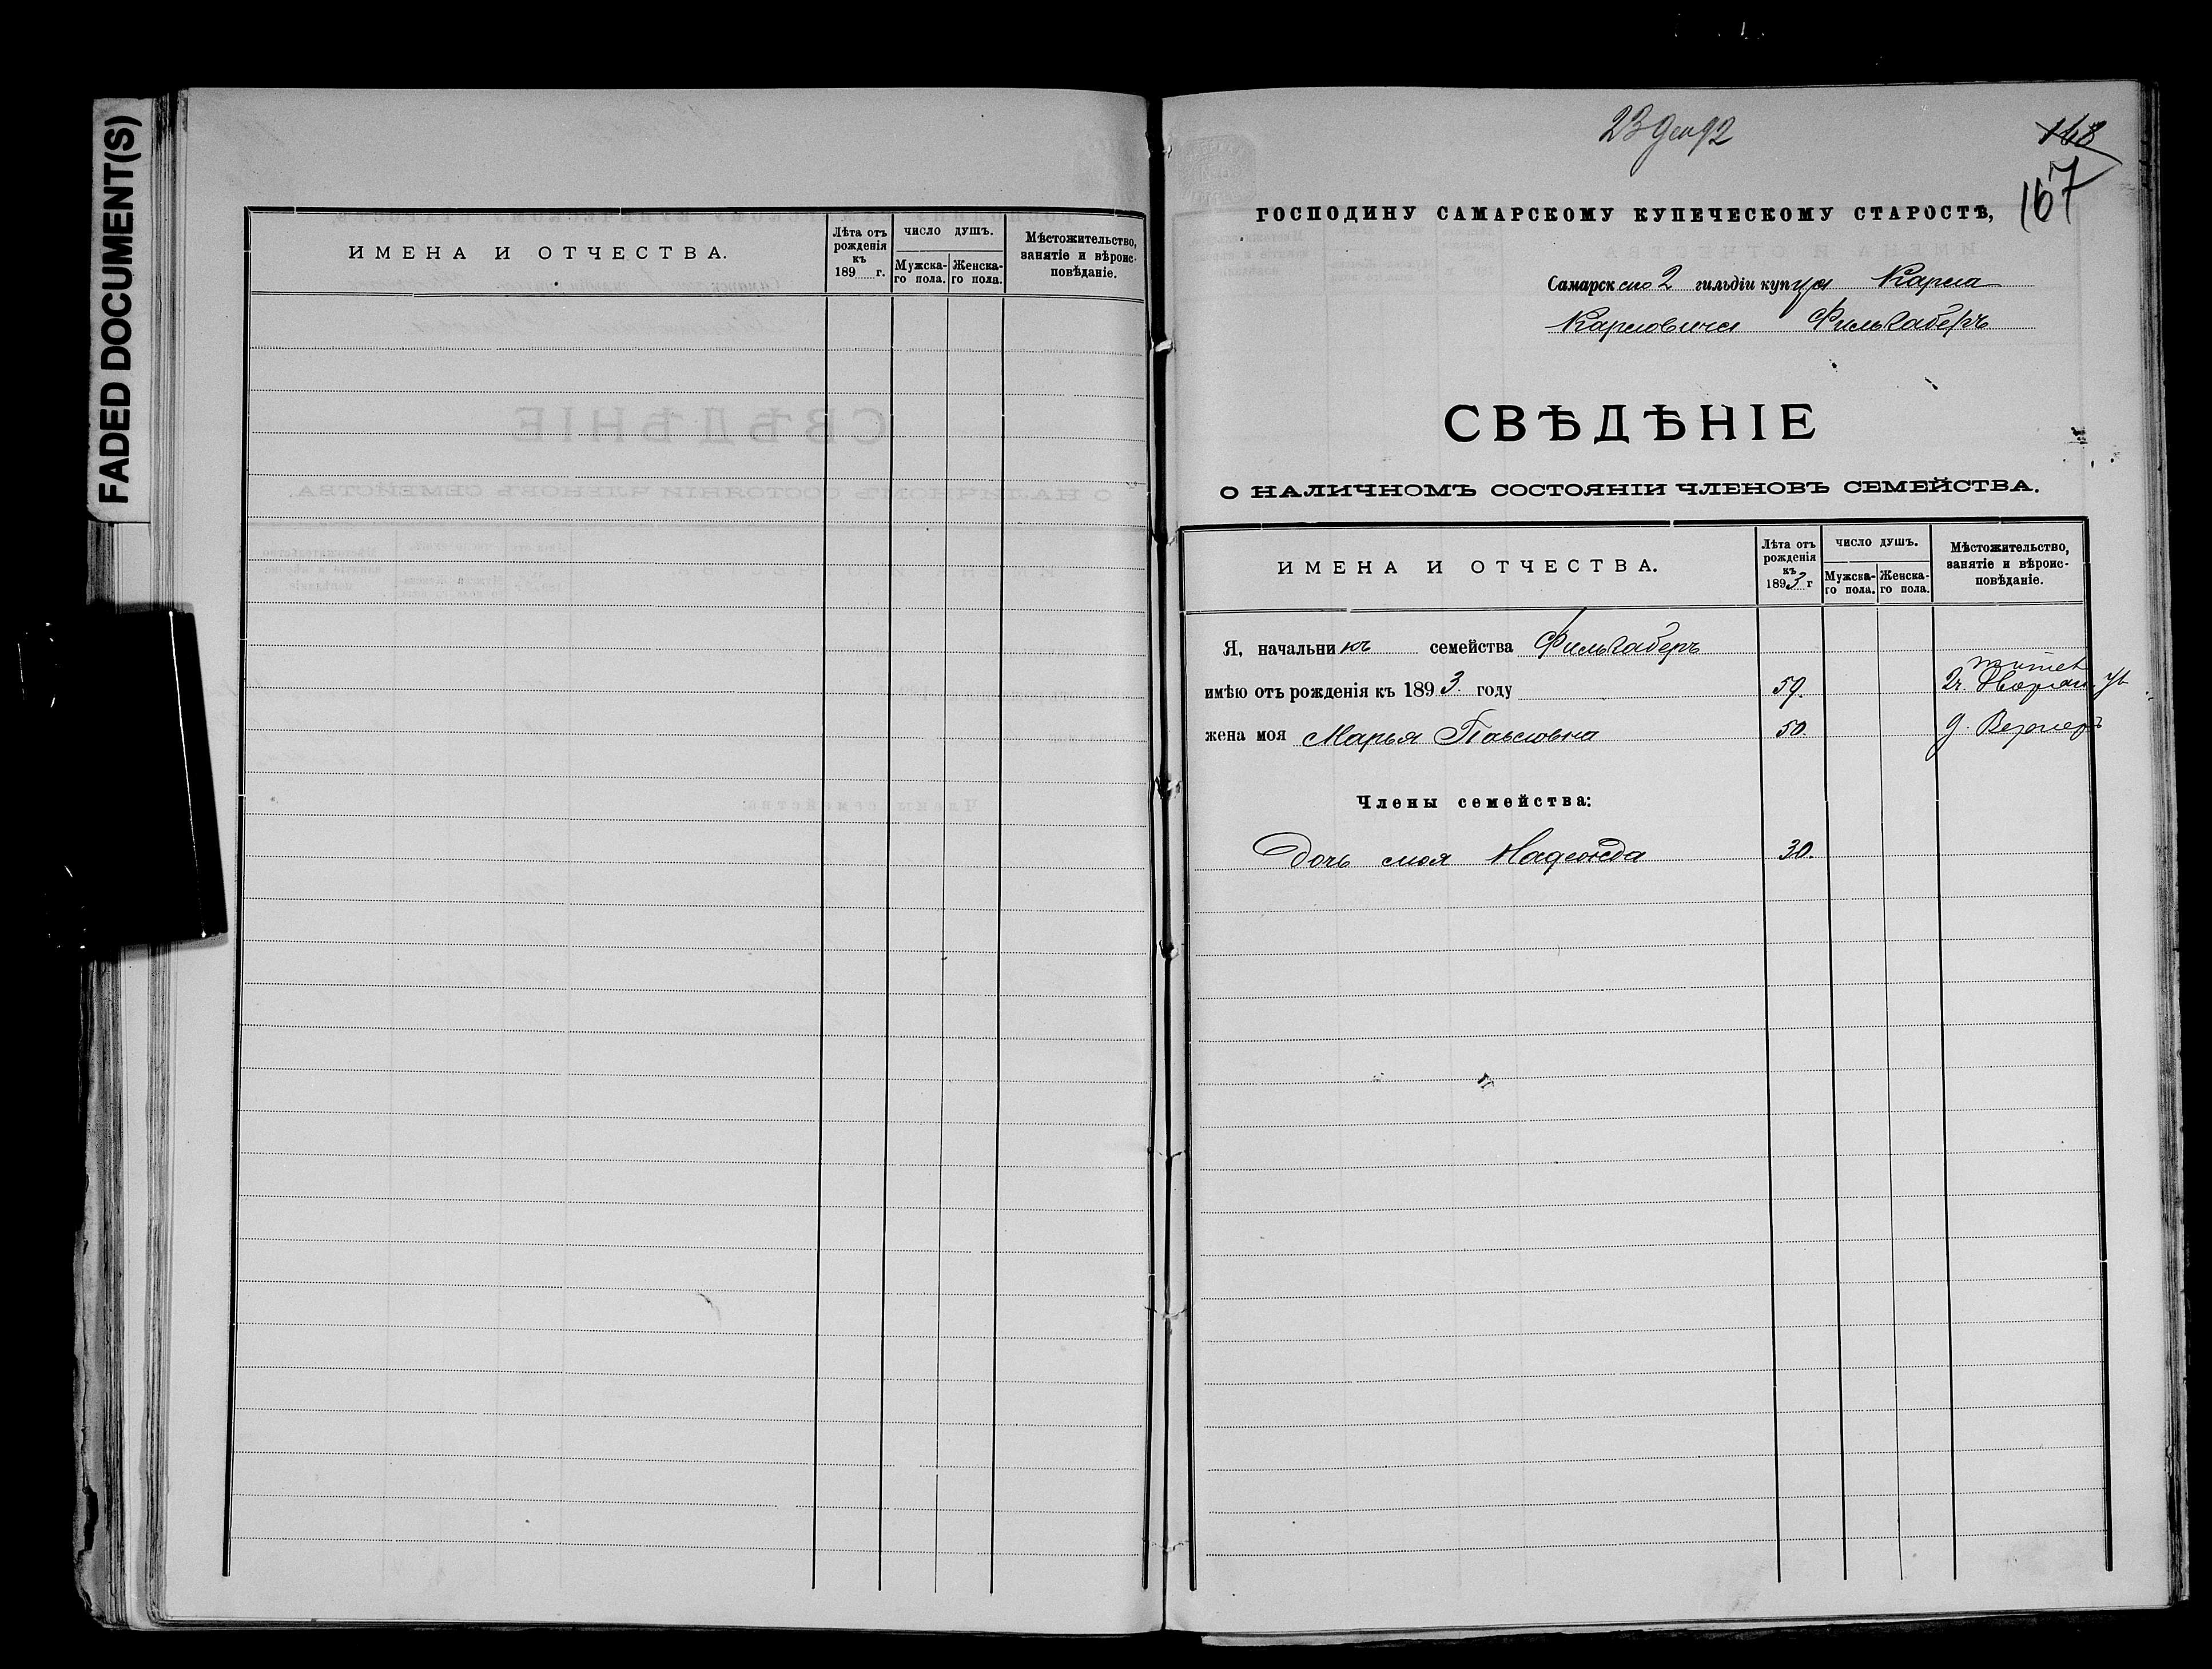 FADED DOCUMENT(S)
ИМЕНА И ОТЧЕСТВА.
Лѣта отъ рожденія къ 189 г.
ЧИСЛО ДУШЪ.
Мужска-го пола.
Женска-го пола.
Мѣстожительство, занятіе и вѣроис-повѣданіе.
23 Дек 92
168
167
ГОСПОДИНУ САМАРСКОМУ КУПЕЧЕСКОМУ СТАРОСТѢ,
Самарскаго 2 гильдіи купца Карла
Карловича Фильгаберъ
СВѢДѢНІЕ
О НАЛИЧНОМЪ СОСТОЯНІИ ЧЛЕНОВЪ СЕМЕЙСТВА.
ИМЕНА И ОТЧЕСТВА.
Лѣта отъ рожденія къ 1893 г
ЧИСЛО ДУШЪ.
Мужска-го пола.
Женска-го пола.
Мѣстожительство, занятіе и вѣроис-повѣданіе.
Я, начальникъ семейства Фильгаберъ
имѣю отъ рожденія къ 1893 году 59. Дворян. ул
жена моя Марья Павловна 50. д. Вернеръ
Члены семейства:
Дочь моя Надежда 30.